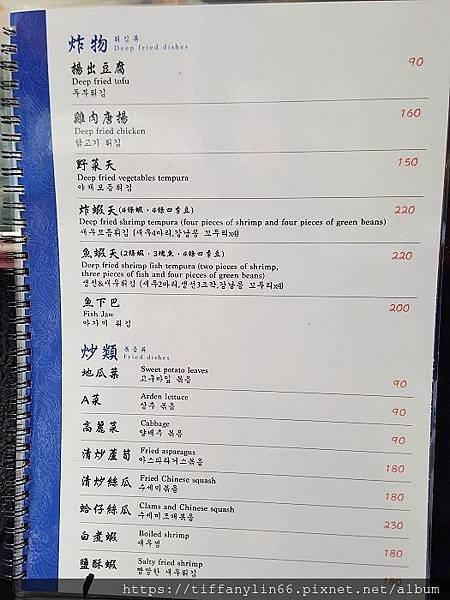 炸物 튀김류
Deep fried dishes
揚出豆腐 90
Deep fried tofu
두부튀김
雞肉唐揚 160
Deep fried chicken
닭고기 튀김
野菜天 150
Deep fried vegetables tempura
야채모듬튀김
炸蝦天(4條蝦，4條四季豆) 220
Deep fried shrimp tempura (four pieces of shrimp and four pieces of green beans)
새우모듬튀김 (새우4마리,강낭콩 꼬투리x4)
魚蝦天(2條蝦，3塊魚，4條四季豆) 220
Deep fried shrimp fish tempura (two pieces of shrimp,
three pieces of fish and four pieces of green beans)
생선&새우튀김 (새우2마리,생선3조각,강낭콩 꼬투리x4)
魚下巴 200
Fish Jaw
아가미 튀김
炒類 볶음류
Fried dishes
地瓜葉 Sweet potato leaves
고구마잎 볶음 90
A菜 Arden lettuce
상추 볶음 90
高麗菜 Cabbage
양배추 볶음 90
清炒蘆筍 Fried asparagus
아스파라거스볶음 180
清炒絲瓜 Fried Chinese squash
수세미볶음 180
蛤仔絲瓜 Clams and Chinese squash
수세미조개볶음 230
白煮蝦 Boiled shrimp
새우찜 180
鹽酥蝦 Salty fried shrimp
짭짤한 새우튀김
https://tiffanylin66.pixnet.net/album